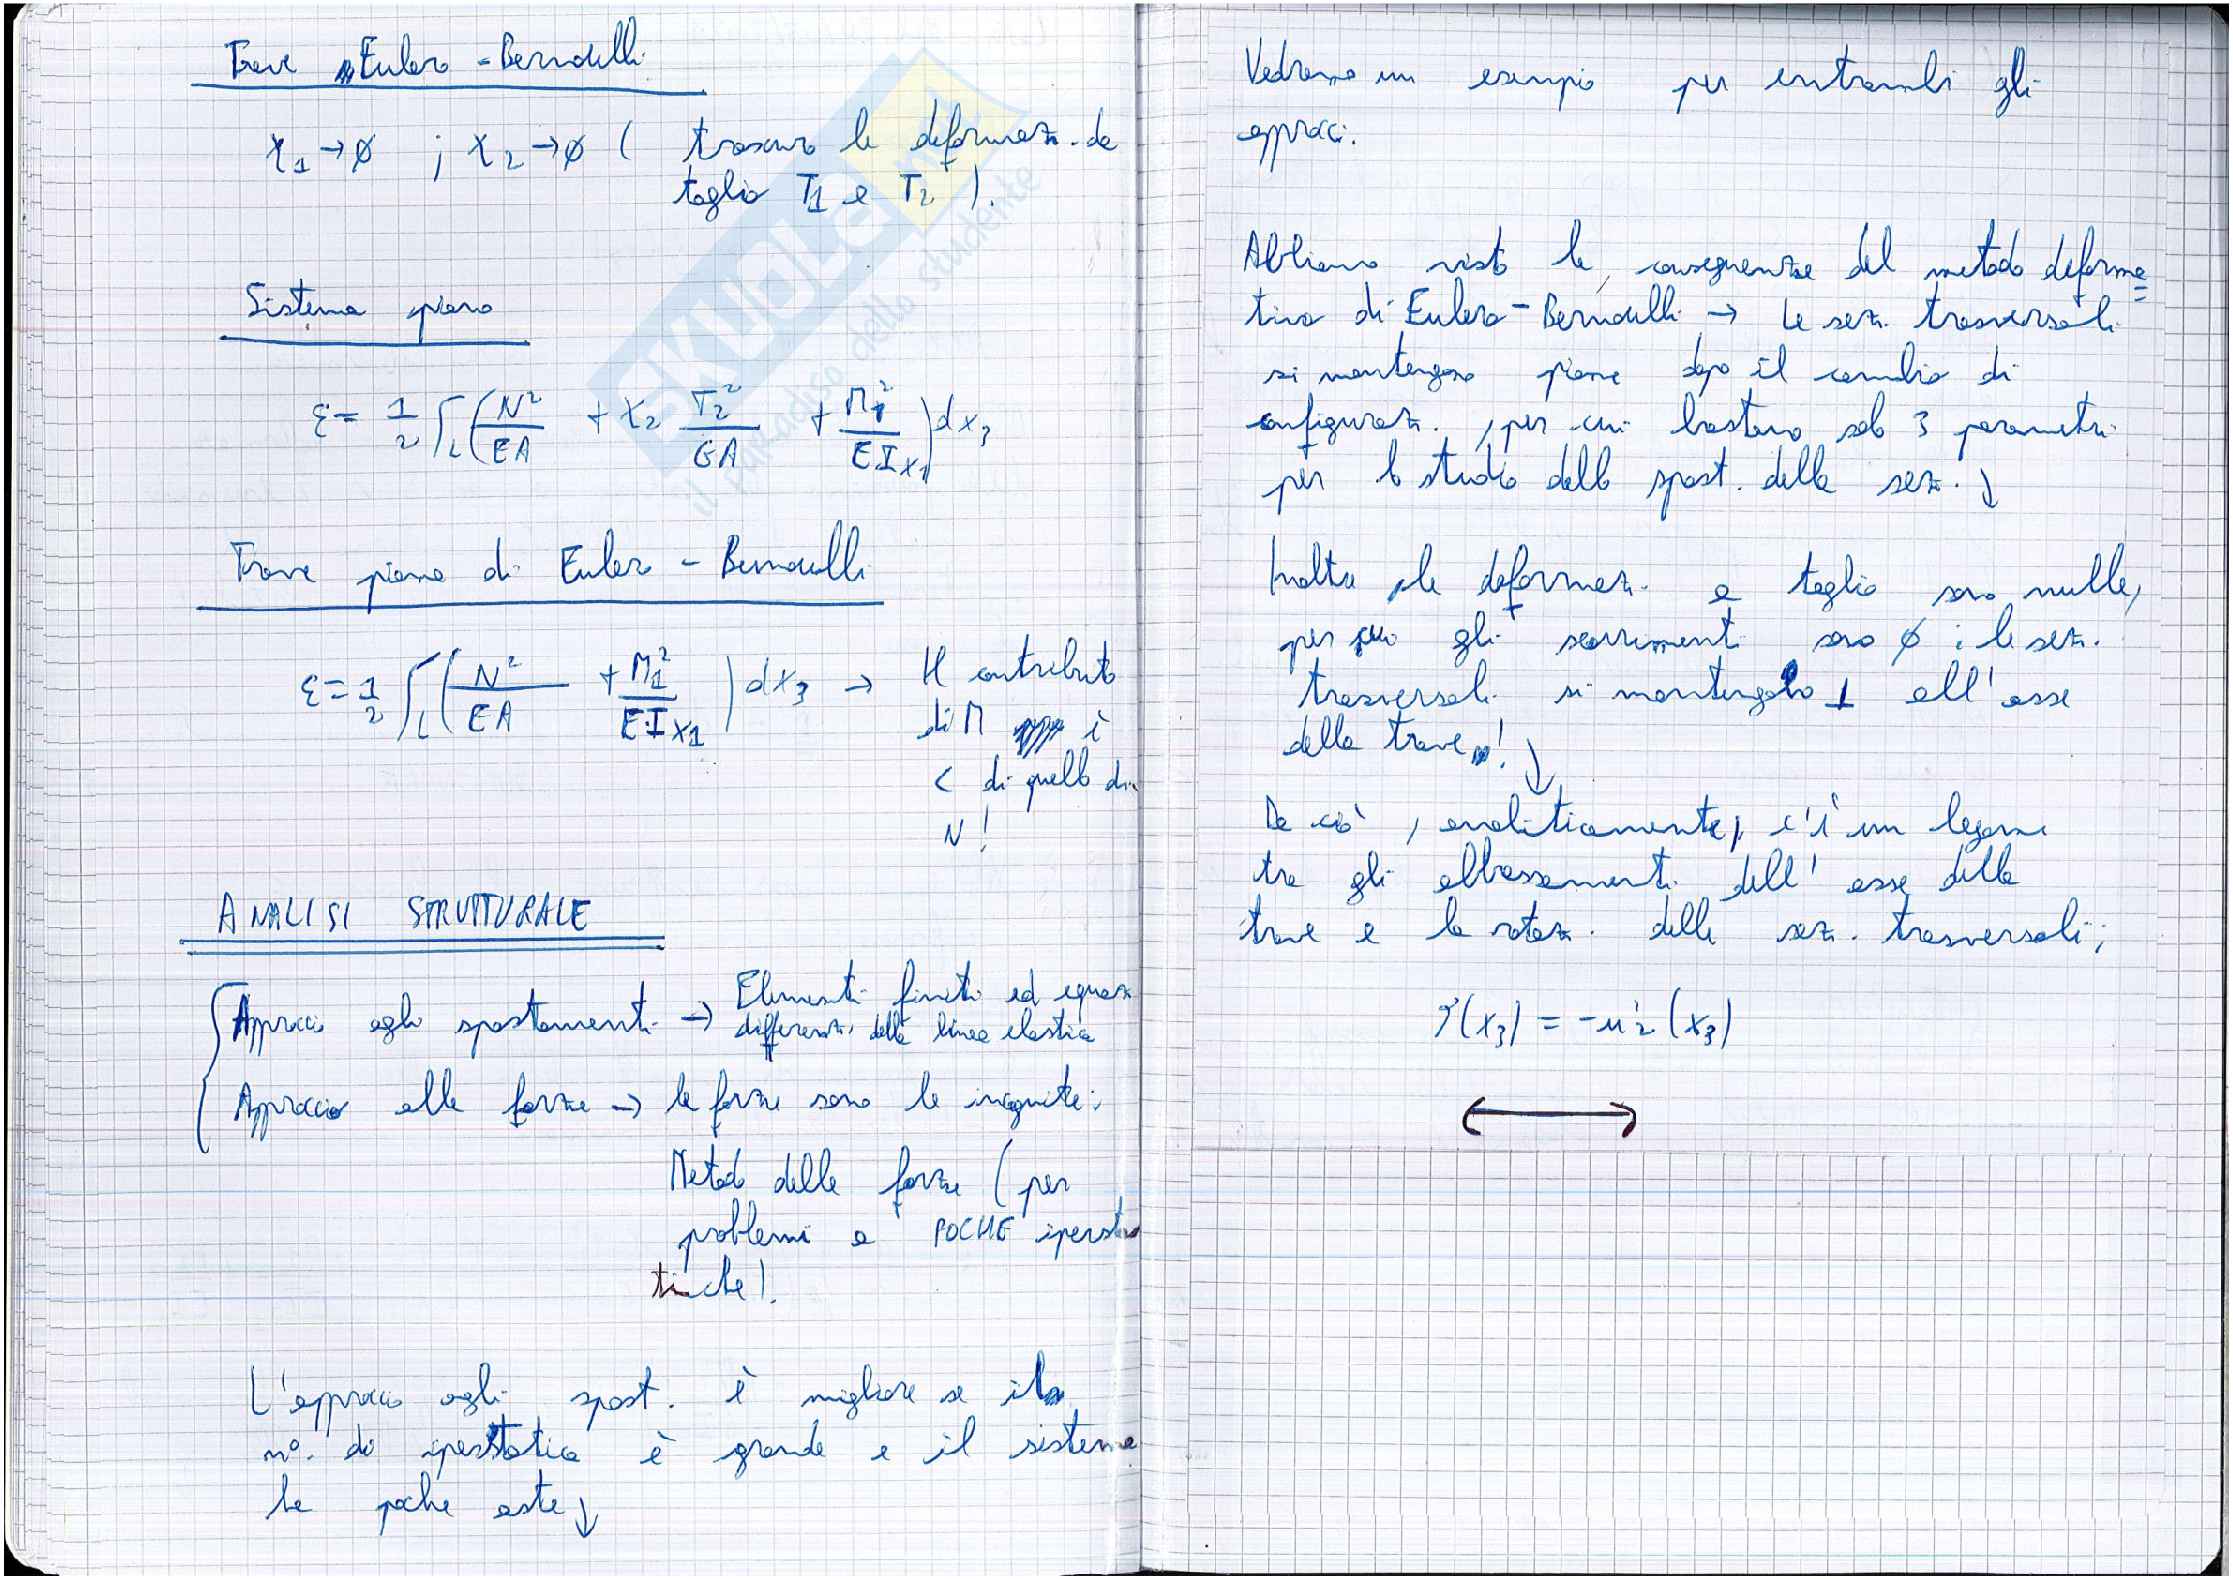 Trave Eulero-Bernoulli
χ1 → ∅ ; χ2 → ∅ ( trascuro le deformaz. da
taglio T1 e T2 ).
Sistema piano
ε = 1/2 ∫L ( N²/EA + χ2 T2²/GA + M1²/EIx1 ) dx3
Trave piana di Eulero - Bernoulli
ε = 1/2 ∫L ( N²/EA + M1²/EIx1 ) dx3 → Il contributo
di M è
< di quello di
N!
ANALISI STRUTTURALE
Approccio agli spostamenti → Elementi finiti ed equaz.
differenz. della linea elastica
Approccio alle forze → le forze sono le incognite:
Metodo delle forze (per
problemi a POCHE ipersta
tiche).
L'approccio agli spost. è migliore se il
n°. di iperstatica è grande e il sistema
ha poche aste ↓
Vedremo un esempio per entrambi gli
approcci.
Abbiamo visto le conseguenze del metodo deforma=
tivo di Eulero-Bernoulli → Le sez. trasversali
si mantengono piane dopo il cambio di
configuraz., per cui bastano solo 3 parametri
per lo studio dello spost. della sez. ↓
Inoltre, le deformaz. a taglio sono nulle,
per cui gli scorrimenti sono ∅ : le sez.
trasversali si mantengono ⊥ all'asse
della trave! ↓
Da ciò, analiticamente, c'è un legame
tra gli abbassamenti dell'asse della
trave e la rotaz. delle sez. trasversali;
φ(x3) = -u'2 (x3)
SKUOLA.net
il paradiso dello studente